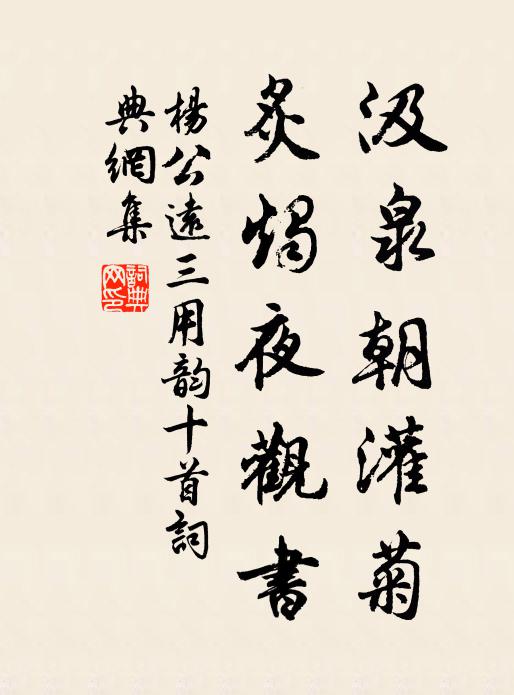 汲泉朝灌菊
炙燭夜觀書
楊公遠三用韵十首詞
典網集
詞典
网印